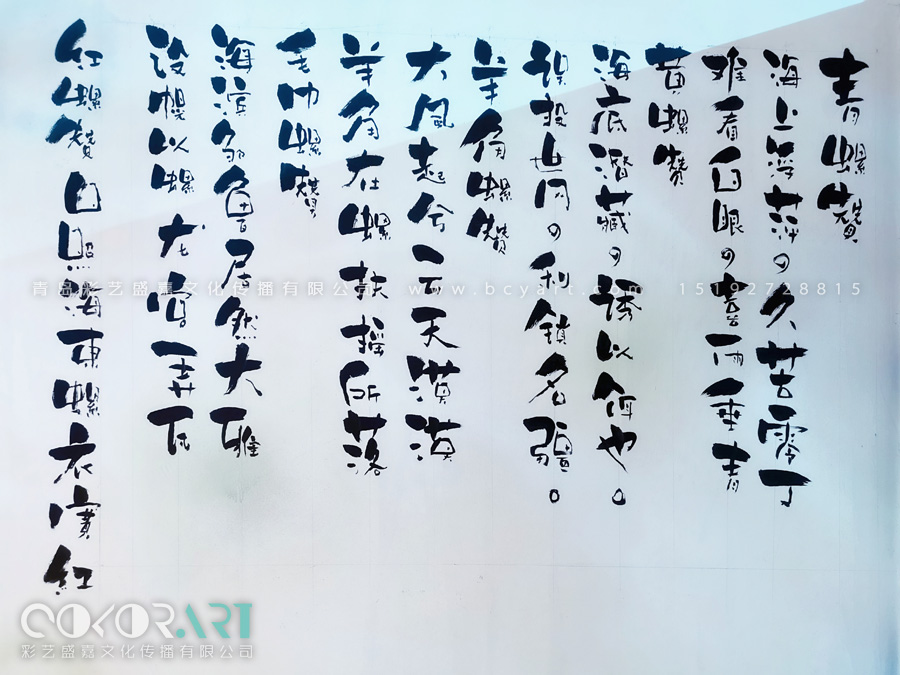 青螺赞
海上浮萍。久苦零丁
难看白眼。喜雨垂青
黄螺赞
海底潜藏。诱以饵也。
误投世网。利锁名疆。
羊角螺赞
大风起兮 云天漠漠
羊角在螺 扶摇所落
毛 螺赞
海滨多鱼居然大雅
以螺 龙宫弄瓦
红螺赞 日照海東螺衣實紅
青岛彩艺盛嘉文化传播有限公司 www.bcyart.com 15192728815
COLORART
彩艺盛嘉文化传播有限公司